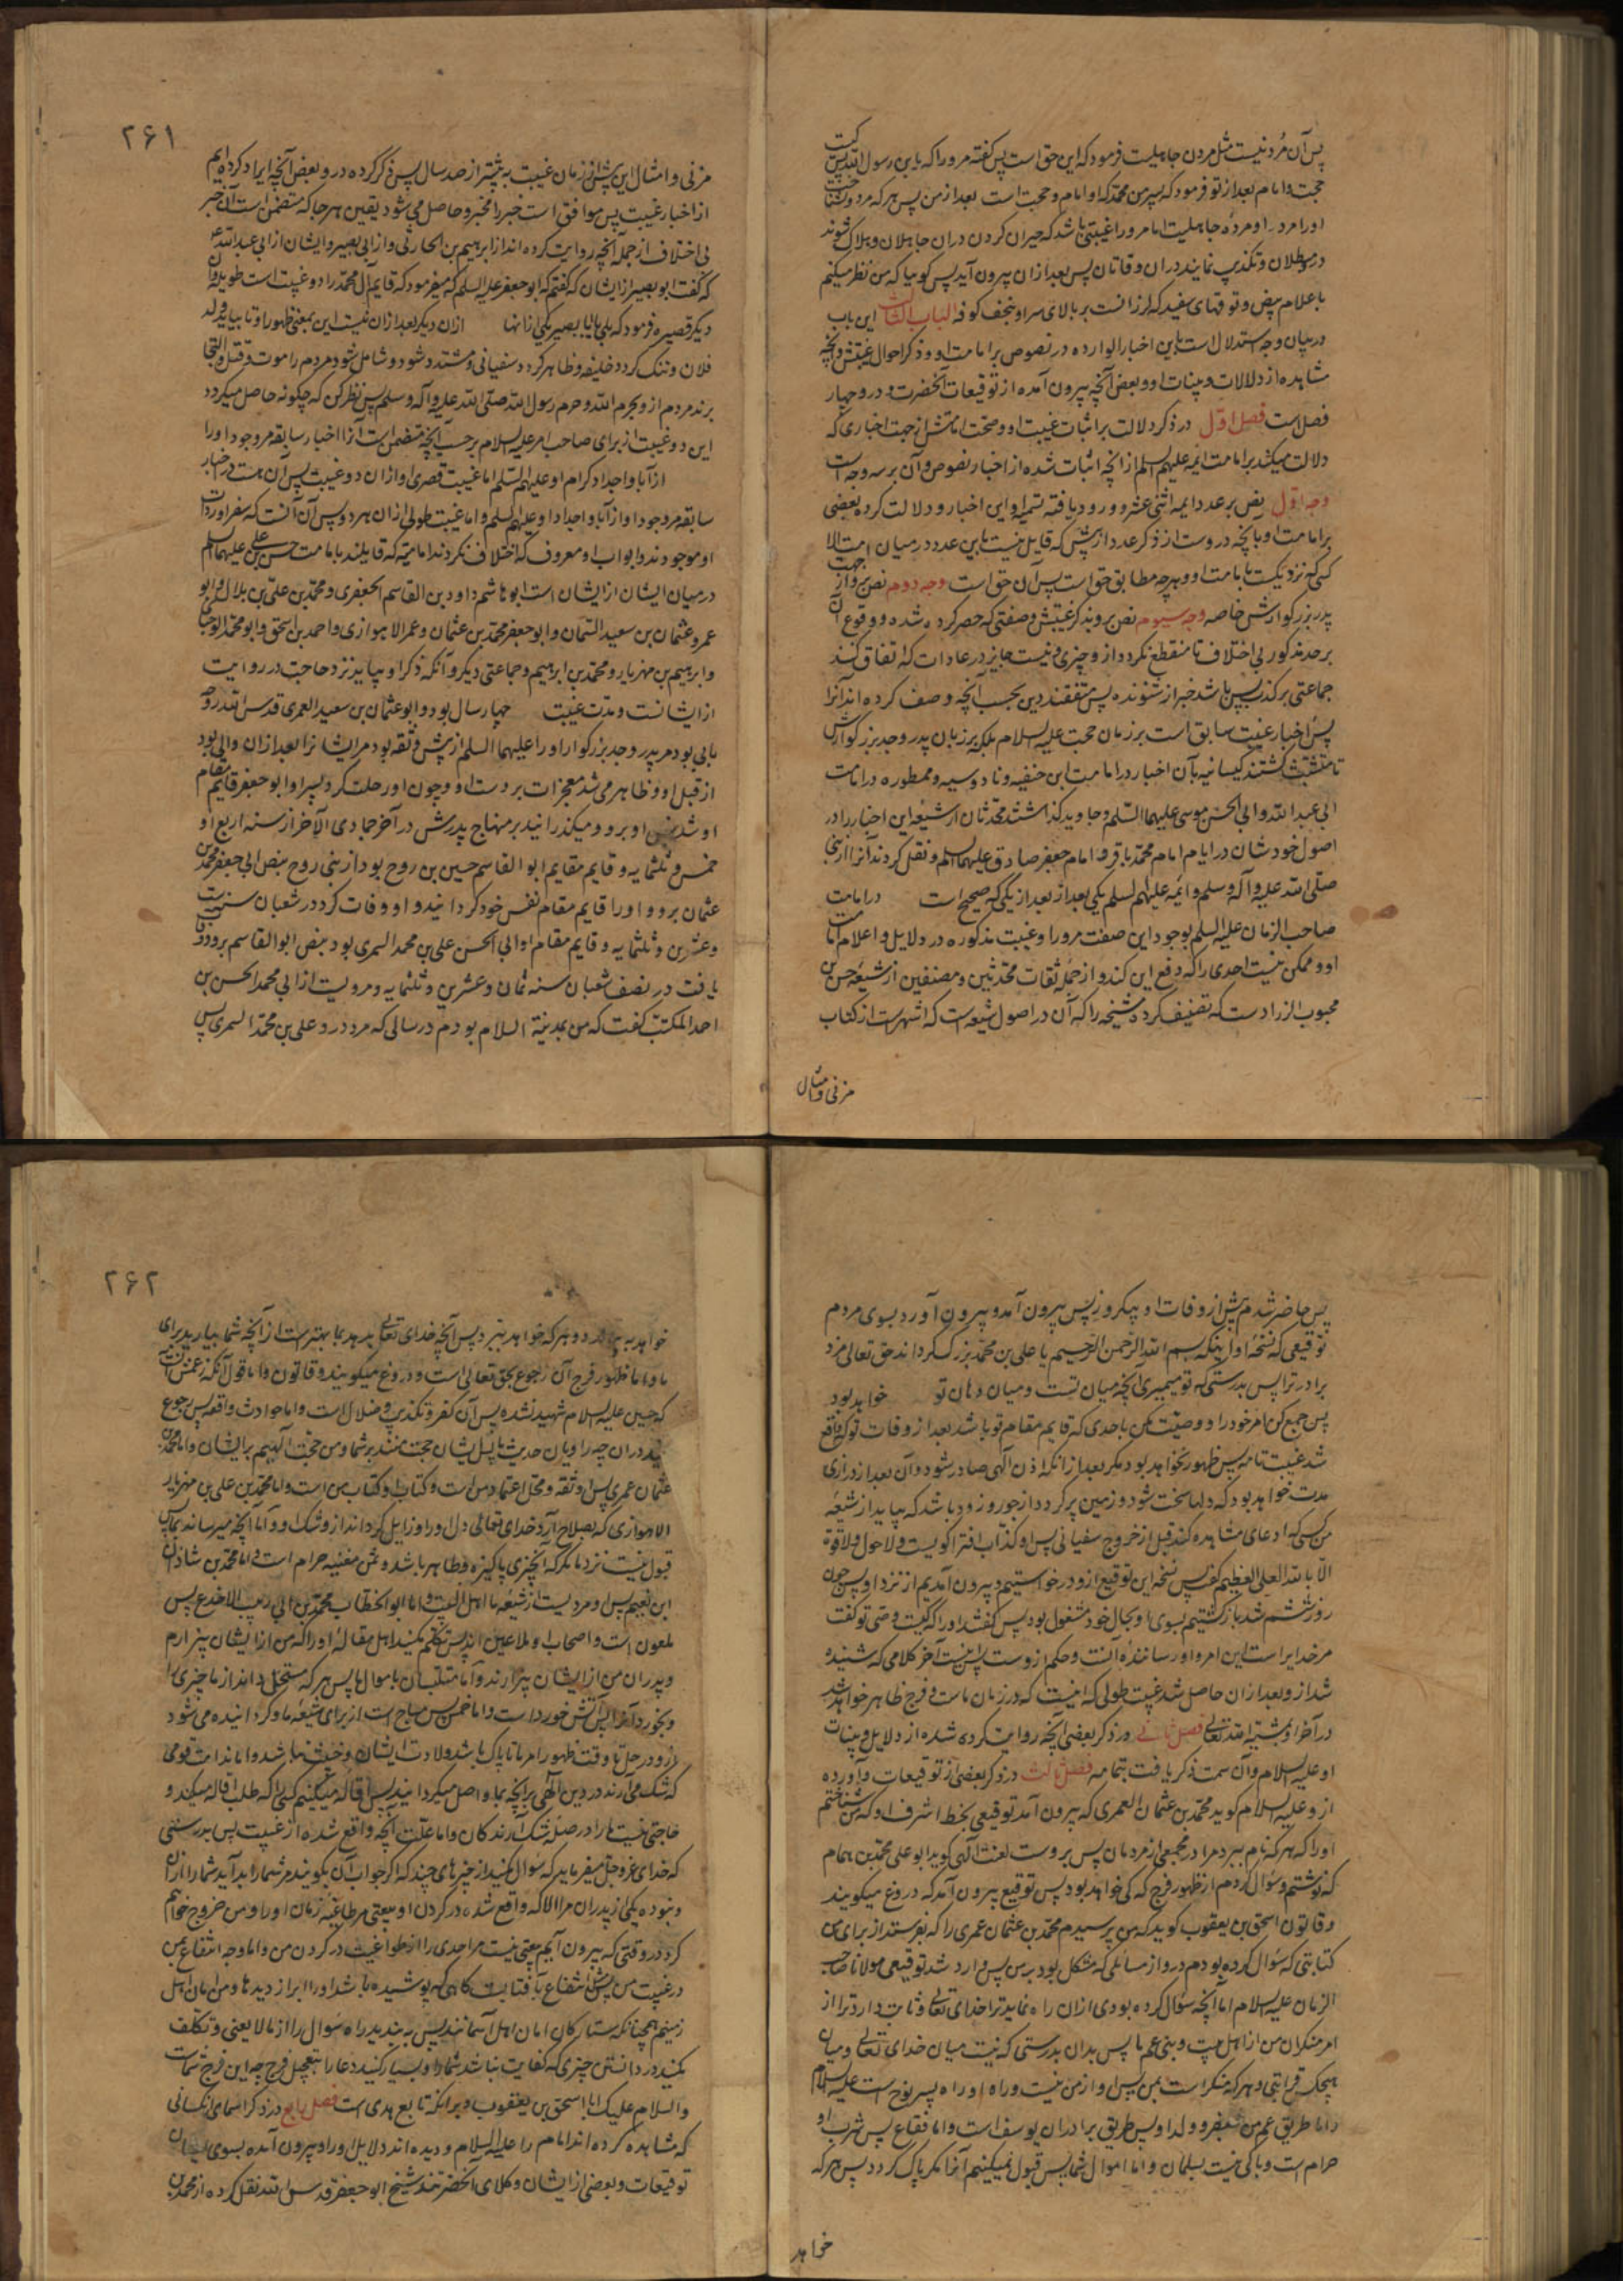 پس آن مُرد نیست مثل مردن جاهلیت فرمود که این حق است پس گفته مر او را که یا بن رسول الله پس کیست
حجت و امام بعد از تو فرمود که پسر من محمد که او امام و حجت است بعد از من پس هر که مرد و نشناخت
او را مرد او مرده جاهلیت اما مر او را غیبتی باشد که حیران کردن دران جاهلان و هلاک شوند
در مبطلان و تکذیب نمایند در ان وقاتان پس بعد از ان بیرون آید پس گویا که من نظر میکنم
باعلام بیض و توقهای سفید که لرزانست بر بالای سر او بنجف کوفه الباب الثالث این باب
در بیان وجه استدلال است باین اخبار الوارده در نصوص بر امامت او و ذکر احوال غیبتش و آنچه
مشاهده از دلالات و بینات او و بعض آنچه بیرون آمده از توقیعات آنحضرت و درو چهار
فصل است فصل اول در ذکر دلالت بر اثبات غیبت او و صحت امامتش از جهت اخباری که
دلالت میکند بر امامت ائمه علیهم السلم از آنچه اثبات شده از اخبار نصوص و آن بر سه وجه است
وجه اول نص بر عدد ایمه اثنی عشر و ورود یافته تسمیه او این اخبار و دلالت کرده بعضی
بر امامت او بآنچه دروست از ذکر عدد از پیش که قایل نیست باین عدد در میان امت الا
کسی که نزدیکست بامامت او و هر چه مطابق حق است پس آن حق است وجه دوم نص برو از جهت
پدر بزرگوارش خاصه وجه سیوم نص برو بذکر غیبتش و صفتی که حصر کرده شده و وقوع آن
بر حد مذکور بی اختلاف تا منقطع نکردد از و چیزی و نیست جایز در عادات که اتفاق کنند
جماعتی بر کذب پس باشد خبر از شنونده پس متفقند دین بحسب آنچه وصف کرده اند آنرا
پس اخبار غیبت سابق است بر زمان حجت علیه السلام بلکه بر زبان پدر و جد بزرگوارش
تا متشبث گشتند کیسانیه بآن اخبار در امامت ابن حنفیه و نادوسیه و ممطوره در امامت
ابی عبد الله و ابی الحسن موسی علیهما السلم و جاوید گذاشتند محدثان از شیعه این اخبار را در
اصول خودشان در ایام امام محمد باقر و امام جعفر صادق علیهما السلم و نقل کردند آنرا از نبی
صلی الله علیه و آله و سلم و ائمه علیهم السلم یکی بعد از بعد از یکی که صحیح است در امامت
صاحب الزمان علیه السلم بوجود این صفت مر او را و غیبت مذکوره در دلایل و اعلام امامت
او و ممکن نیست احدی را که دفع این کند و از جمله ثقات محدثین و مصنفین از شیعه حسن بن
محبوب الزرادست که تصنیف کرده مشیخه را که آن در اصول شیعه است که اشهرست از کتاب
مزنی و امثال
۲۶۱
مزنی و امثال این پیش از زمان غیبت به بیشتر از صد سال پس ذکر کرده درو بعض آنچه ایراد کرده ایم
از اخبار غیبت پس موافق است خبر را مخبر و حاصل می شود یقین هر جا که متضمن است آن خبر
بی اختلاف از جمله آنچه روایت کرده اند از ابرهیم بن الحارثی و از ابی بصیر و ایشان از ابی عبد الله ع
که گفت ابو بصیر از ایشان که گفتم که ابو جعفر علیه السلم که میفرمود که قایم آل محمد را دو غیبت است طویله و آن
دیگر قصیره فرمود که بلی یا ابا بصیر یکی از انها ازان دیگر بعد ازان نیست این بمعنی ظهور او تا بیاید ولد
فلان و تنگ کردد خلیفه و ظاهر کردد سفیانی و مشتد شود و شامل شود مردم را موت و قتل و التجا
برند مردم از و بحرم الله و حرم رسول الله صلی الله علیه و آله و سلم پس نظر کن که چکونه حاصل میکردد
این دو غیبت از برای صاحب امر علیه السلام بر حسب آنچه متضمن است آنرا اخبار سابقه مر وجود او را
از آبا و اجداد کرام او علیهم السلم اما غیبت قصری او ازان دو غیبت پس آن است در اخبار
سابقه مر وجود او از آبا و اجداد او علیهم السلم و اما غیبت طولی ازان هر دو پس آن آنست که سفرا و روات
او موجودند و ابواب او معروف که اختلاف نکردند امامیه که قایلند بامامت حسن بن علی علیهما السلم
در میان ایشان از ایشان است ابو هاشم داود بن القاسم الجعفری و محمد بن علی بن بلال و ابو
عمرو عثمان بن سعید السمان و ابو جعفر محمد بن عثمان و عمر الاهوازی و احمد بن اسحق و ابو محمد الوجنا
و ابرهیم بن مهزیار و محمد بن ابرهیم و جماعتی دیکر و آنکه ذکر او بیاید نزد حاجت در روایت
از ایشانست و مدت غیبت چهار سال بود و ابو عثمان بن سعید العمری قدس الله روحه
بابی بود مر پدر و جد بزرگوار او را علیهما السلم از پیش و ثقه بود مر ایشانرا بعد ازان والی بود
از قبل او و ظاهر می شد معجزات بر دست او و چون او رحلت کرد پسر او ابو جعفر قایم مقام
او شد بنص او برو و میکذرانید بر منهاج پدرش در آخر جمادی الآخر از سنه اربع او
خمس و ثلثمایه و قایم مقام ابو القاسم حسین بن روح بود از بنی روح بنص ابی جعفر محمد بن
عثمان برو و او را قایم مقام نفس خود کردانید و او وفات کرد در شعبان سنه ست
و عشرین و ثلثمایه و قایم مقام او ابی الحسن علی بن محمد السمری بود بنص ابو القاسم برو و وفات
یافت در نصف شعبان سنه ثمان و عشرین و ثلثمایه و مرویست از ابی محمد الحسن بن
احمد المکتب گفت که من بمدینة السلام بودم در سالی که مرد درو علی بن محمد السمری پس
پس حاضر شدم پیش از وفات او بیکروز پس بیرون آمد و بیرون آورد بسوی مردم
توقیعی که نسخه او اینکه بسم الله الرحمن الرحیم یا علی بن محمد بزرگ کرداند حق تعالی مزد
برادر ترا پس بدرستی که تو میمیری آنچه میان تست و میان دهان تو خواهد بود
پس جمع کن امر خود را و وصیت مکن باحدی که قایم مقام تو باشد بعد از وفات تو که واقع
شد غیبت تامه پس ظهور نخواهد بود مکر بعد از انکه اذن الهی صادر شود و آن بعد از درازی
مدت خواهد بود که دلها سخت شود و زمین پر کردد از جور و زود باشد که بیاید از شیعه
من کسی که ادعای مشاهده کند قبل از خروج سفیانی پس او کذاب افترا کویست و لا حول و لا قوة
الا بالله العلی العظیم گفت پس نسخه این توقیع ازو درخواستیم و بیرون آمدیم از نزد او پس چون
روز ششم شد باز کشتیم بسوی او و بحال خود مشغول بود پس گفتند او را که کیست وصی تو گفت
مر خدایراست این امر و او رسانندۀ آنست و حکم ازوست پس اینست آخر کلامی که شنیده
شد ازو بعد ازان حاصل شد غیبت طولی که اینست که در زمان ماست و فرج ظاهر خواهد شد
در آخر او بمشیة الله تعالی فصل ثانی در ذکر بعضی آنچه روایت کرده شده از دلایل و بینات
او علیه السلام و آن سمت ذکر یافت بتمامه فصل ثالث در ذکر بعضی از توقیعات و آورده
ازو علیه السلام کوید محمد بن عثمان العمری که بیرون آمد توقیعی بخط اشرف او که من شناختم
او را که هر که نام ببرد مرا در مجمعی از مردمان پس بروست لعنت الهی کوید ابو علی محمد بن همام
که نوشتم و سؤال کردم از ظهور فرج که کی خواهد بود پس توقیع بیرون آمد که دروغ میکویند
وقاتون اسحق بن یعقوب کوید که من پرسیدم محمد بن عثمان عمری را که بفرستد از برای من
کتابتی که سؤال کرده بودم درو از مسایلی که مشکل بود بر من پس وارد شد توقیعی مولانا صاحب
الزمان علیه السلام اما آنچه سؤال کرده بودی ازان راه نماید ترا خدای تعالی و ثابت دارد ترا از
امر منکران من از اهل بیت و بنی عم ما پس بدان بدرستی که نیست میان خدای تعالی و میان
هیچکس قرابتی و هر که منکر است بمن پس او از من نیست و راه او راه پسر نوح است علیه السلام
و اما طریق عم من جعفر و ولد او پس طریق برادران یوسف است و اما فقاع پس شرب او
حرام است و باکی نیست بسلمان و اما اموال شما پس قبول نمیکنیم آنرا مکر پاک کردد پس هر که
خواهد
۲۶۲
خواهد بپیوندد و هر که خواهد ببرد پس آنچه خدای تعالی بدهد بما بهترست از آنچه شما بیارید برای
ما و اما ظهور فرج آن رجوع بحق تعالی است و دروغ میکویند وقاتون و اما قول آنکه زعمش آنست
که حسین علیه السلام شهید نشده پس آن کفر و تکذیب و ضلال است و اما حوادث واقعه پس رجوع
کنید دران چه راویان حدیث ما پس ایشان حجت منند بر شما و من حجت الهییم بر ایشان و اما محمد بن
عثمان عمری پس او ثقه و محل اعتماد من است و کتاب او کتاب من است و اما محمد بن علی بن مهزیار
الاهوازی که بصلاح آرد خدای تعالی دل او را و زایل کرداند ازو شک او و اما آنچه میرساند بما پس
قبول نیست نزد ما مکر که آنچیزی پاکیزه و طاهر باشد و ثمن مغنیه حرام است و اما محمد بن شاذان
ابن نعیم پس او مردیست از شیعه ما اهل البیت و اما ابو الخطاب محمد بن ابی زینب الاجدع پس
ملعون است و اصحاب او ملاعین اند پس تکلم مکنید اهل مقالۀ او را که من از ایشان بیزارم
و پدران من از ایشان بیزارند و اما متلبسان باموال ما پس هر که مستحل داند از ما چیزی را
و بخورد آنرا پس آتش خورداست و اما خمس پس مباح است از برای شیعه ما و کردانیده می شود
ازو در حل تا وقت ظهور امر ما تا پاک باشد ولادت ایشان و خبیث نباشد و اما ندامت قومی
که شک می آرند در دین الهی بر آنچه بما واصل میکردانیدند پس اقاله میکنیم کسی را که طلب اقاله میکند و
حاجتی نیست ما را در صلۀ شک آرندکان و اما علت آنچه واقع شده از غیبت پس بدرستی
که خدای عز و جل میفرماید که سؤال نکنید از چیزهای چند که اگر جواب آن بگویند مر شما را بد آید شما را ازان
و نبوده یکی از پدران مرا الا که واقع شده در کردن او بیعتی مر طاغیۀ زمان او را و من خروج خواهم
کرد در وقتی که بیرون آیم بیعتی نیست مر احدی را از طواغیت در کردن من و اما وجه انتفاع بمن
در غیبت من پس مثل انتفاع بآفتابست کاهی که پوشیده باشد او را ابر از دیدها و من امان اهل
زمینم همچنانکه ستارکان امان اهل آسمانند پس ببندید راه سؤال را از ما لا یعنی و تکلف
مکنید در دانستن چیزی که کفایت نباشد شما را و بسیار کنید دعا را بتعجیل فرج چه این فرج شماست
و السلام علیک یا اسحق بن یعقوب و بر آنکه تابع هدی است فصل رابع در ذکر اسمای آنکسانی
که مشاهده کرده اند امام را علیه السلام و دیده اند دلایل او را و بیرون آمده بسوی ایشان
توقیعات و بعضی از ایشان وکلای آنحضرتند شیخ ابو جعفر قدس الله نقل کرده از محمد بن